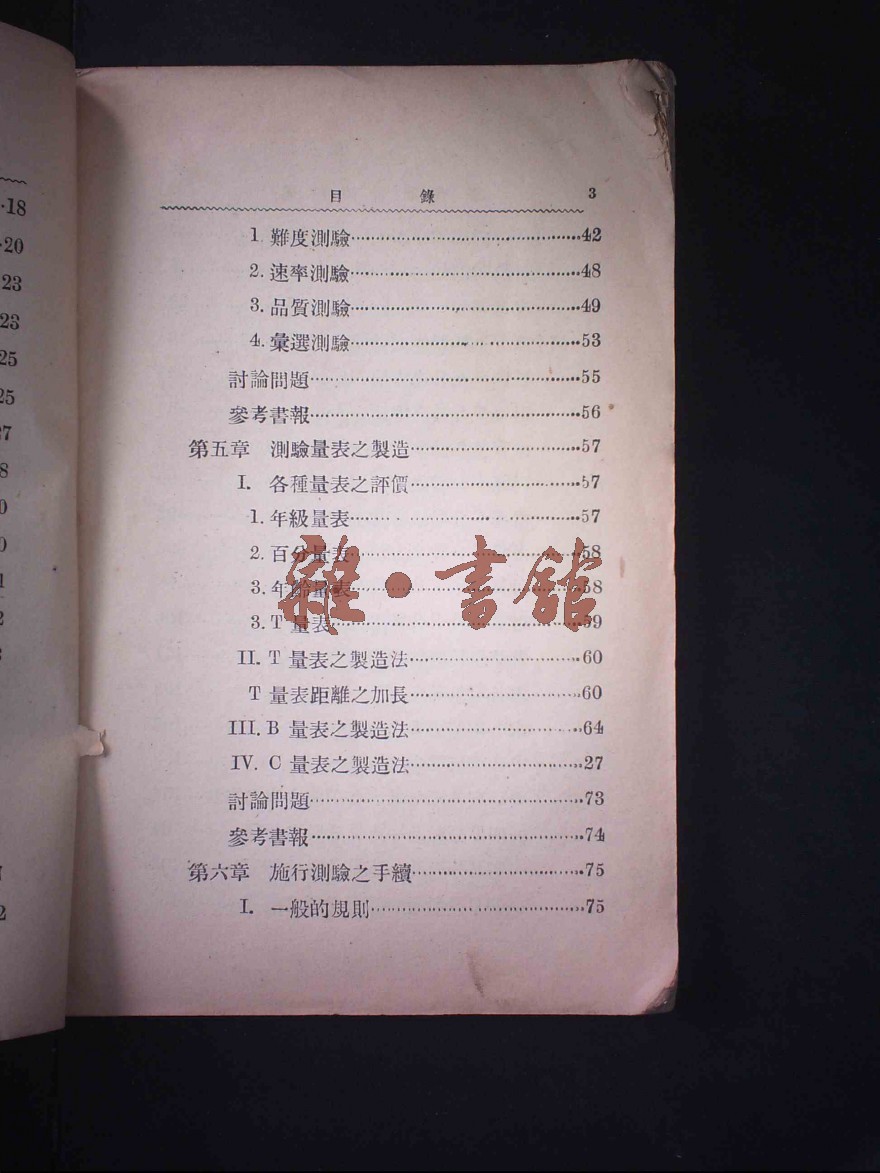 ·18
·20
23
23
25
25
27
8
0
0
1
2
3
2
目 錄 3
1. 難度測驗……42
2. 速率測驗……48
3. 品質測驗……49
4. 彙選測驗……53
討論問題……55
參考書報……56
第五章 測驗量表之製造……57
I. 各種量表之評價……57
1. 年級量表……57
2. 百分量表……58
3. 年齡量表……58
3. T 量表……59
II. T 量表之製造法……60
T 量表距離之加長……60
III. B 量表之製造法……64
IV. C 量表之製造法……27
討論問題……73
參考書報……74
第六章 施行測驗之手續……75
I. 一般的規則……75
雜·書館